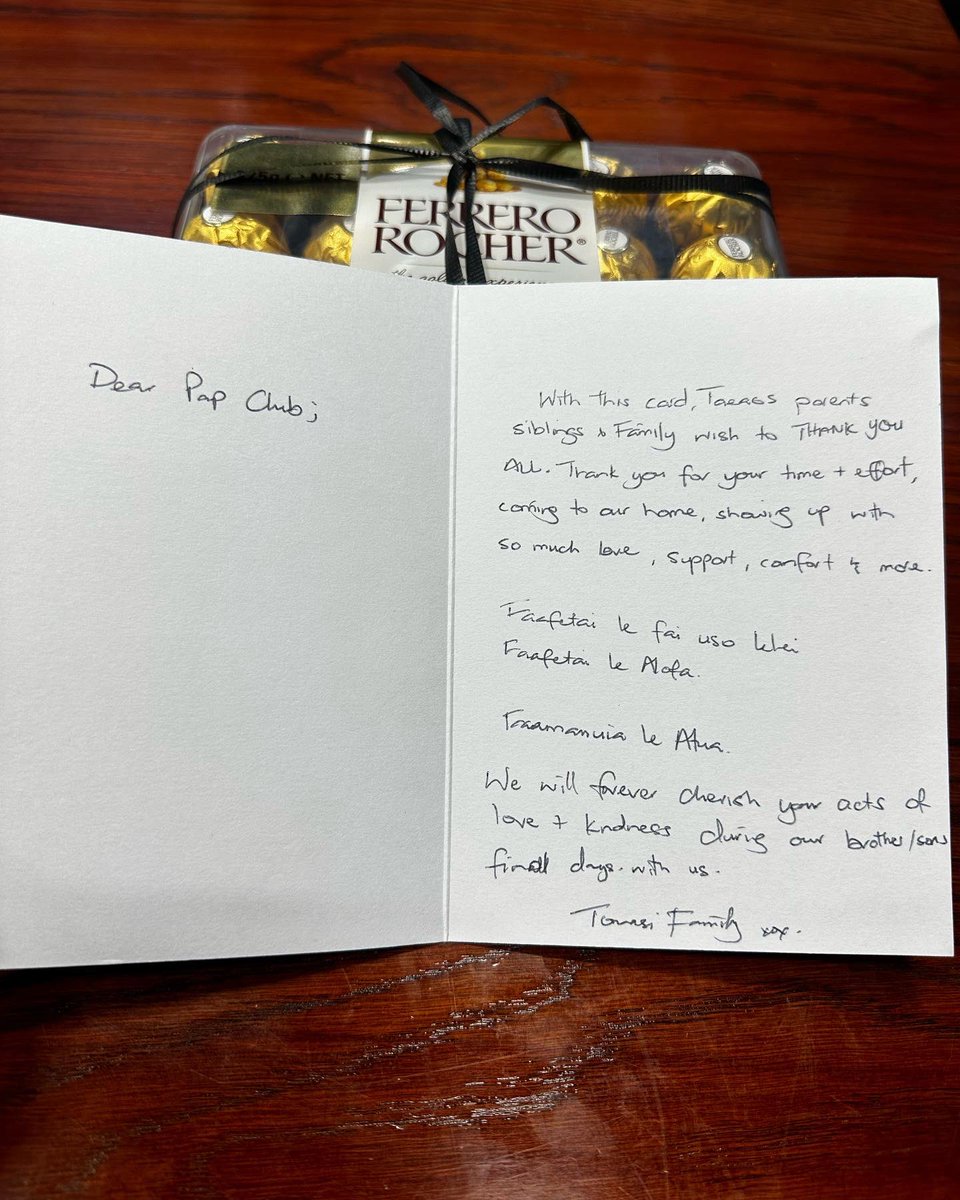 FERRERO
ROCHER®
Dear Pap Club;
With this card, Taeaos parents
siblings & Family wish to THANK YOU
ALL. Thank you for your time + effort,
coming to our home, showing up with
so much love, support, comfort & more.
Faafetai le fai uso lelei
Faafetai le Alofa.
Faamanuia le Atua.
We will forever cherish your acts of
love + kndness during our brother/sons
final days. with us.
Tomasi Family xox.